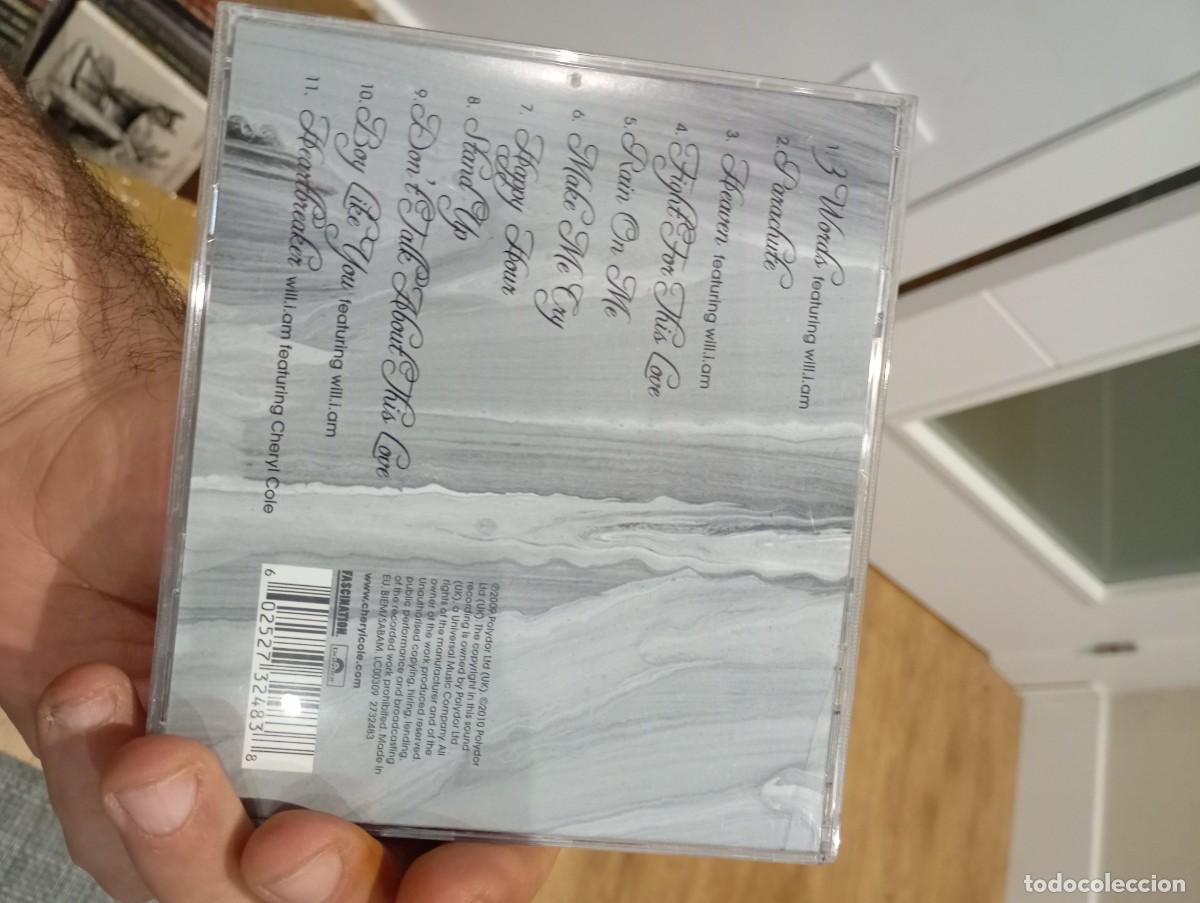 1. 3 Words featuring will.i.am
2. Parachute
3. Heaven featuring will.i.am
4. Fight For This Love
5. Rain On Me
6. Make Me Cry
7. Happy Hour
8. Stand Up
9. Don't Talk About This Love
10. Boy Like You featuring will.i.am
11. Heartbreaker will.i.am featuring Cheryl Cole
℗2009 Polydor Ltd (UK). ©2010 Polydor
Ltd (UK). The copyright in this sound
recording is owned by Polydor Ltd
(UK), a Universal Music Company. All
rights of the manufacturer and of the
owner of the work produced reserved.
Unauthorised copying, hiring, lending,
public performance and broadcasting
of the recorded work prohibited. Made in
EU BIEM/SABAM LC00309 2732483
www.cherylcole.com
FASCINATION.
6 02527 32483 8
todocoleccion